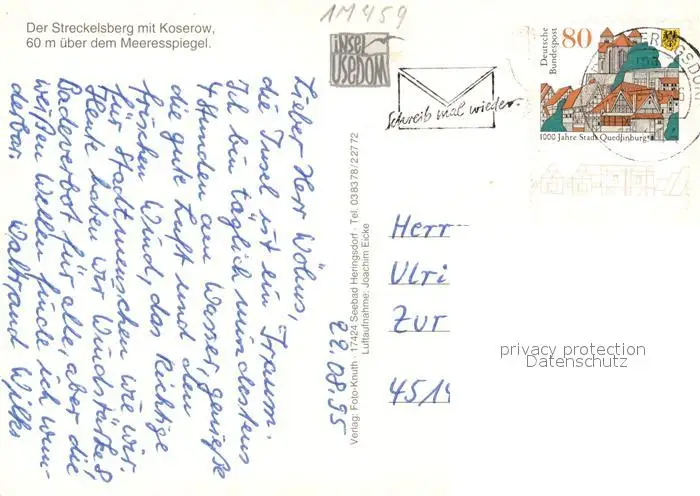 Der Streckelsberg mit Koserow,
60 m über dem Meeresspiegel.
1M459
insel
USEDOM
Schreib mal wieder.
Deutsche
Bundespost
80
1000 Jahre Stadt Quedlinburg
Lieber Herr
die Insel ist ein Traum.
Ich bin täglich mindestens
4 Stunden am Wasser, genieße
die gute Luft und den
frischen Wind, das Richtige
für Stadtmenschen wie wir.
Heute haben wir Windstärke 8,
Badeverbot für alle, aber die
weißen Wellen finde ich wun-
derbar. Waltraud Wilks
22.08.95
Verlag: Foto-Knuth · 17424 Seebad Heringsdorf · Tel. 038378/22772
Luftaufnahme: Joachim Eicke
Herr
Ulri
Zur
4514
privacy protection
Datenschutz